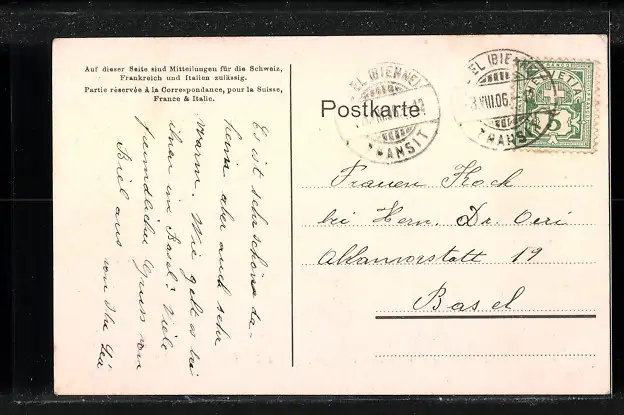 Auf dieser Seite sind Mitteilungen für die Schweiz,
Frankreich und Italien zulässig.
Partie réservée à la Correspondance, pour la Suisse,
France & Italie.
Postkarte
BIEL (BIENNE)
TRANSIT
BIEL (BIENNE)
VIII.06
TRANSIT
HELVETIA
5
Es ist sehr schön da-
heim aber auch sehr
warm. Wie geht es bei
ihnen in Basel? Viele
freundliche Grüsse von
Biel aus
von
Frauen Koch
bei Herrn. Dr. Oeri
19
Basel